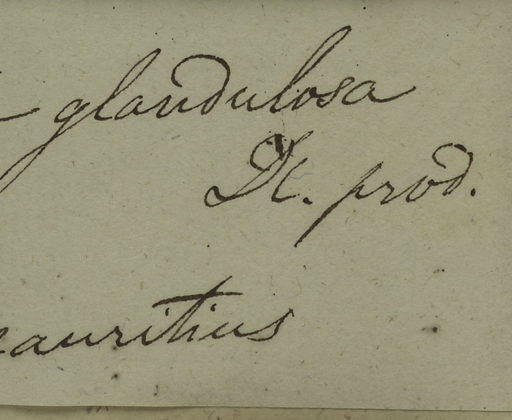 glandulosa
DC. prod.
mauritius